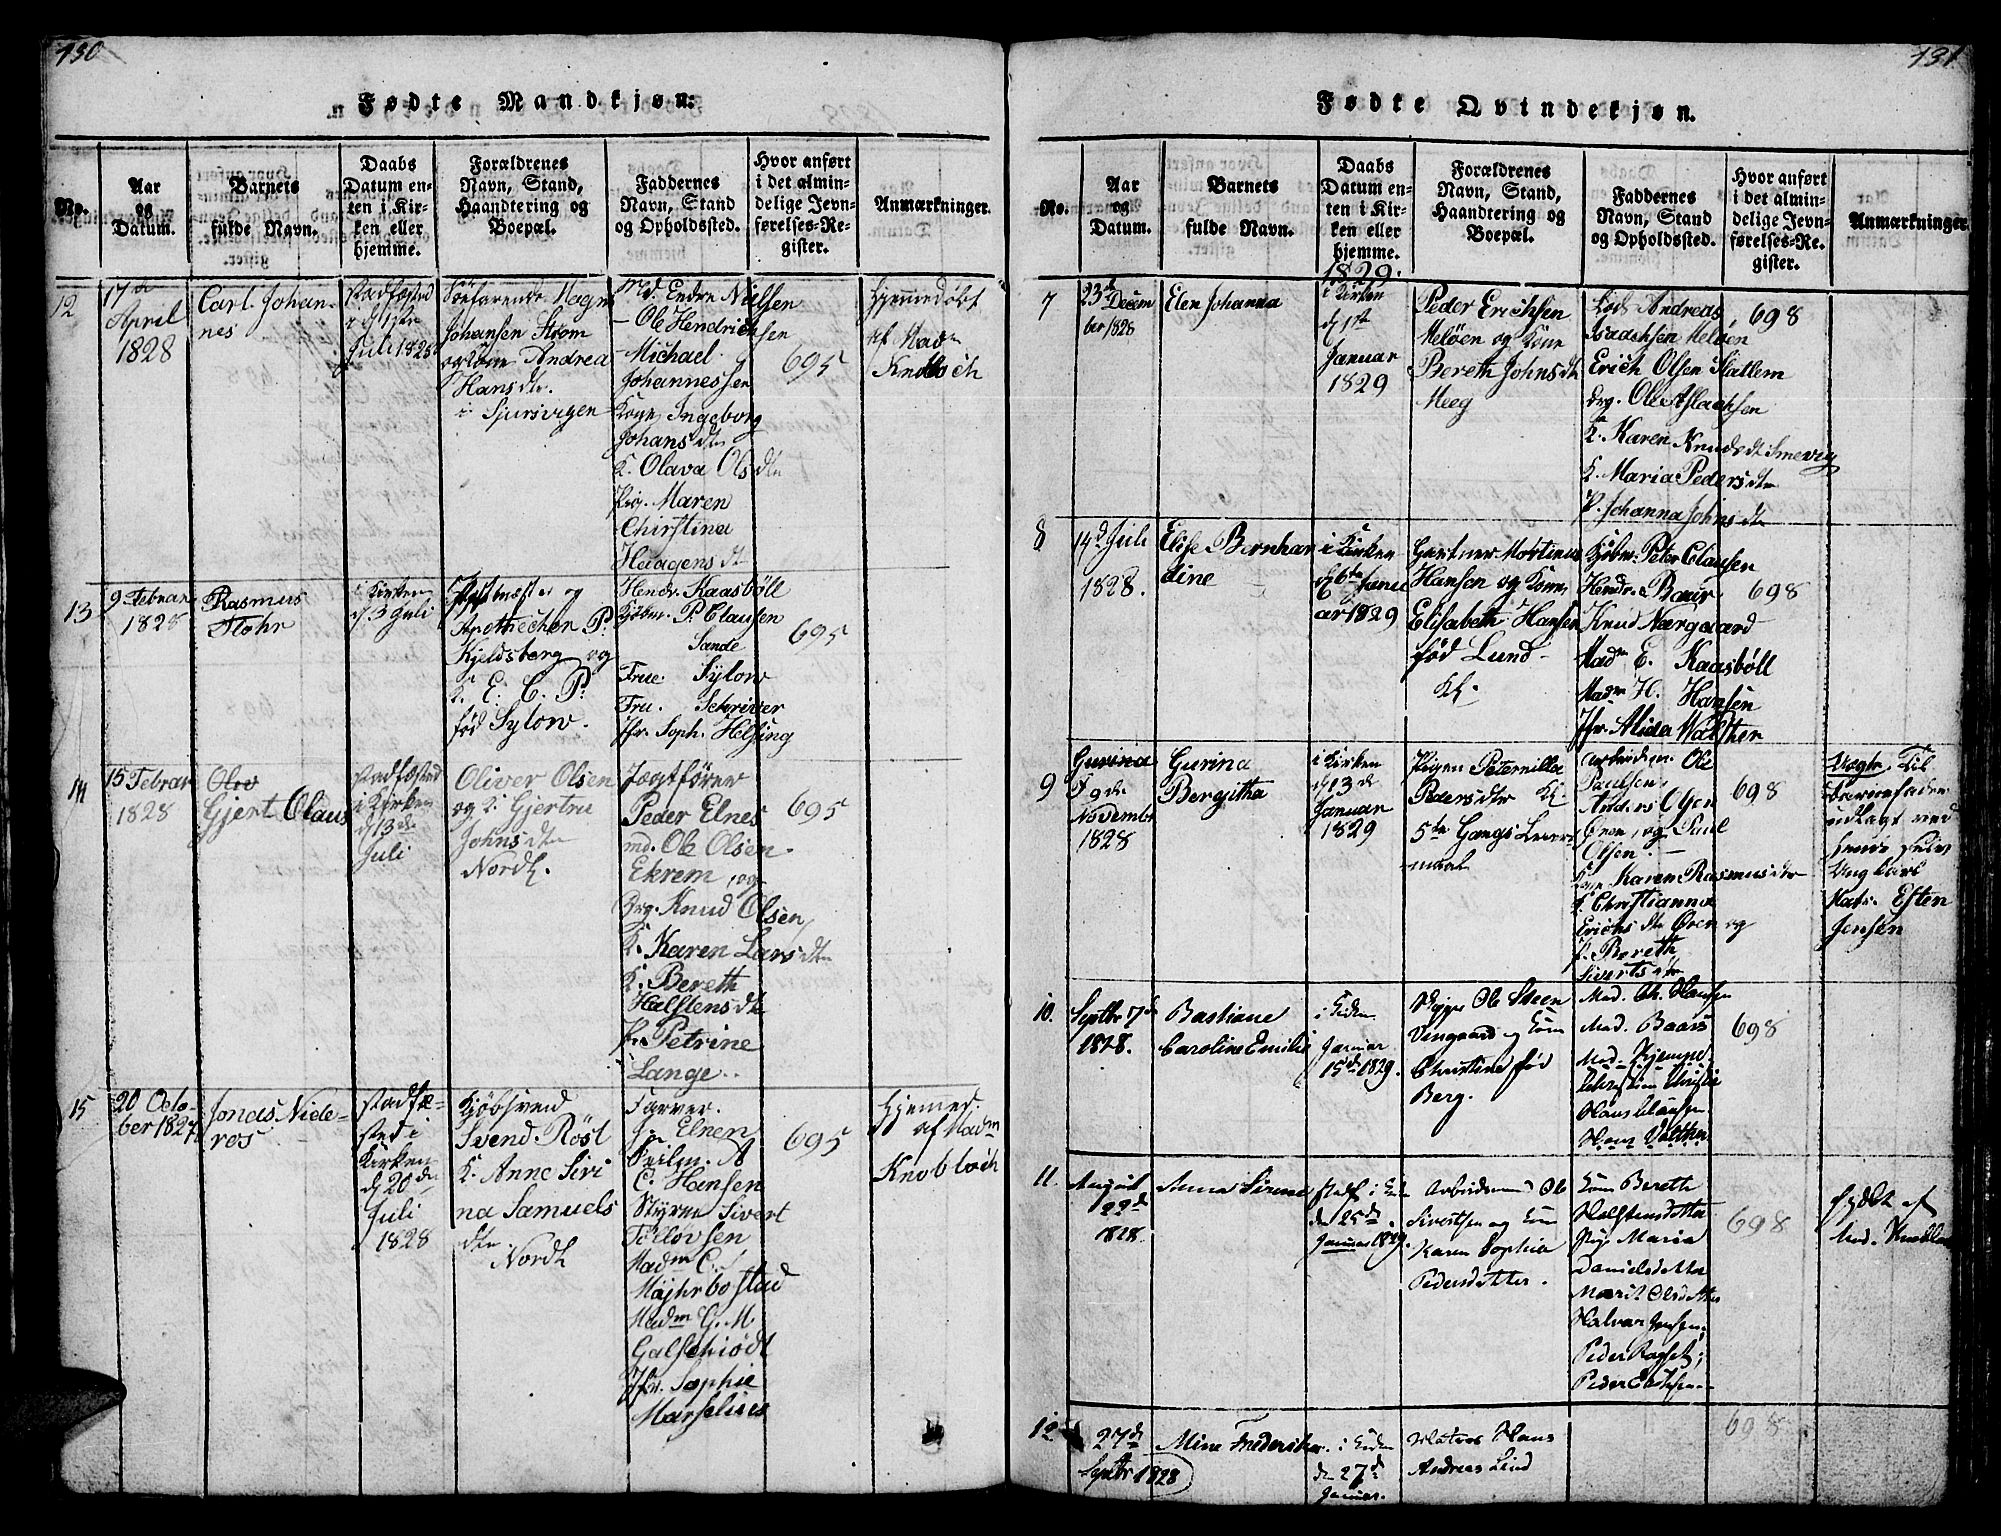 130
Fødte Mandkjøn:
No.
Aar
og
Datum.
Barnets
fulde Navn.
Daabs
Datum en-
ten i Kir-
ken eller
hjemme.
Forældrenes
Navn, Stand,
Haandtering og
Boepæl.
Faddernes
Navn, Stand
og Opholdssted.
Hvor anført
i det almin-
delige Jevn-
førelses-Re-
gister.
Anmærkninger.
12
17de
April
1828
Carl Johan-
nes
stadfæsted
d 1ste
Juli 1828
Søefarende
Johansen Strom
og Kone Andrea
Hansdtr.
Md. Endre Nielsen
- Ole Hendrichsen
- Michael
Johannessen
Kone Ingeborg
Johansdtr
K. Olava Olsdtr
Pig. Maren
Christina
695
Hjemmedøbt
af Madm
Knobloch
13
9 Februar
1828
Rasmus
Stohr
i Kirken
d. 3 Juli
Postmester og
Apothecher P:
Kjeldsberg og
K. E. C. P:
fød Sylow.
Hendr. Kaasbøll
Kjbm. P. Clausen
Sande
Frue Sylow
Fru. Schriver
Jfr. Soph. Helsing
695
14
15 Februar
1828
Olov
Gjert Olaus
stadfæsted
i Kirken
d 13de
Juli
Oliver Olsen
og K. Gjertru
Johnsdtr
Nordl.
Jogtfører
Peder Elnes
md. Ole Olsen
Ekrem, og
Drg. Knud Olsen
K. Karen Larsdtr
K. Bereth
Halstensdtr
Petrine
Lange.
695
15
20 Octo-
ber 1827
Jonas Nide-
ros
stadfæ-
sted i
Kirken
d 20de
Juli
1828
Svend Röst
K. Anne Siri
na Samuels
dtr.
Nordl
Farver.
Elnen
C. Hansen
Styrm Sivert
Torløvsen
Madm C.
Møjhrbostad
Madm G. M.
Galschiödt
Jfr. Sophie
Marselius
695
Hjemed.
af Madm
Knobloch
131.
Fødte Qvindekjøn.
No.
Aar
og
Datum.
Barnets
fulde Navn.
Daabs
Datum en-
ten i Kir-
ken eller
hjemme.
Forældrenes
Navn, Stand,
Haandtering og
Boepæl.
Faddernes
Navn, Stand
og Opholdssted.
Hvor anført
i det almin-
delige Jevn-
førelses-Re-
gister.
Anmærkninger.
1829.
7
23de Decem
ber 1828
Elen Johanna
i Kirken
d 1ste
Januar
1829
Peder Erichsen
Meløen og Kone
Bereth Johnsdtr
Andreas
Isaachsen Meløen
Erich Olsen
Drg. Ole Aslachsen
K. Karen Knudsdt Smevig
K. Maria Pedersdtr
P. Johanna Johnsdtr
698
8
14de Juli
1828.
Elise Bernhar
dine
i Kirken
d 6te Janu
ar 1829
Gartner Mortinus
Hansen og Kone
Elisabeth Hansen
fød Lund
Kl.
Kjbm. Peter Clausen
Hendr. Baar
Knud Nærgaard
Madm E. Kaasböll
Madm H. Hansen
Jfr. Alida Walther
698
9
Gurina
9de
Novembr
1828
Gurina
Bergitha
i Kirken
d 13de
Januar
1829
Pigen Peternilla
Pedersdtr Kl
5te Gangs Leier-
maal
arbeidsm. Ole
Paulsen,
Anders Olsen
Ören, og Paul
Olsen.
Karen Rasmusdtr
K. Christianna
Erichsdtr Ören og
P. Bereth
Sivertsdtr
698
Til
Barnefader
udlagt ved
hende selv
Ungkarl
Mats. Esten
Jensen
10.
Septbr 7de
1828.
Bastiane
Caroline Emilie
i Kirken
Januar
15de 1829.
Ole Steen
Vengaard og Kone
Christine fød
Berg.
Mad. Ch. Hansen
Mad. Baars
Mad. Kjempe
Hans Clausen
Hans Valther
698
11.
August
22de
1828.
Anna Sirene
stadf i Kirken
den 25de
Januar 1829.
Arbeidsmand Ole
Sivertsen og Kone
Karen Sophia
Pedersdatter.
Kone Bereth
Halstensdatter
Pige Maria
Danielsdatter
Marit Olsdatter
Halvar Jensen,
Peder
Peder Erichsen
698
døbt af
Mad. Knobloch
12
27de
Septbr 1828
Mine Frederika.
i Kirken
den 27de
Januar.
Hans
Andreas Lind
698